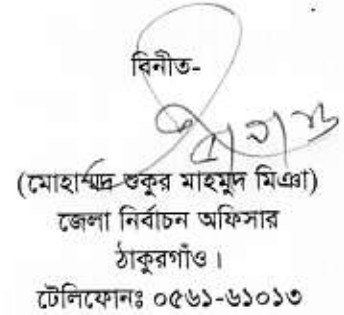 বিনীত-
(মোহাম্মদ শুকুর মাহমুদ মিঞা)
জেলা নির্বাচন অফিসার
ঠাকুরগাঁও।
টেলিফোনঃ ০৫৬১-৬১০১৩